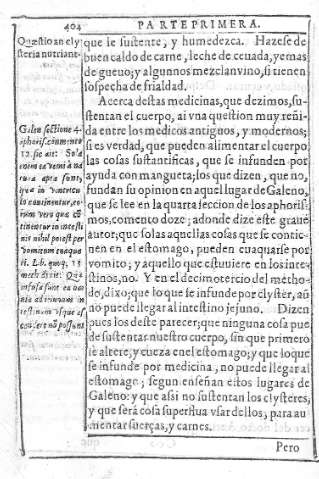 404
PARTE PRIMERA.
Questio an clysteria nutriant.
que le sustente, y humedezca. Hazese de
buen caldo de carne, leche de ceuada, yemas
de gueuo; y algunos mezclan vino, si tienen
sospecha de frialdad.
Acerca destas medicinas, que dezimos, su-
stentan el cuerpo, ai vna question muy reñi-
da entre los medicos antignos, y modernos;
si es verdad, que pueden alimentar el cuerpo
las cosas sustantificas, que se infunden por
ayuda con mangueta; los que dizen, que no,
fundan su opinion en aquel lugar de Galeno,
que se lee en la quarta seccion de los aphoris-
mos, comento doze; adonde dize este graue
autor; que solas aquellas cosas que se contie-
nen en el estomago, pueden euaquarse por
vomito; y aquello que estuuiere en los inte-
stinos, no. Y en el decimotercio del metho-
do, dixo; que lo que se infunde por clyster, aũ
no puede llegar al intestino jejuno. Dizen
pues los deste parecer; que ninguna cosa pue
de sustentar nuestro cuerpo, sin que primero
se altere, y cueza en el estomago; y que lo que
se infunde por medicina, no puede llegar al
estomago; segun enseñan estos lugares de
Galeno: y que assi no sustentan los clysteres,
y que será cosa superflua vsar dellos, para au
mentar fuerças, y carnes.
Galen sectione 4.
aphoris. comento
12. sic ait: Sola
enim ea vomi à na
tura apta sunt,
quæ in ventricu
lo continentur, eo-
rum vero quæ cõ
tinentur in intesti
nis nihil potest per
vomitum euacua
ri. Lib. quoq; 13
meth. dicit: Quæ
infusa sunt
Pero